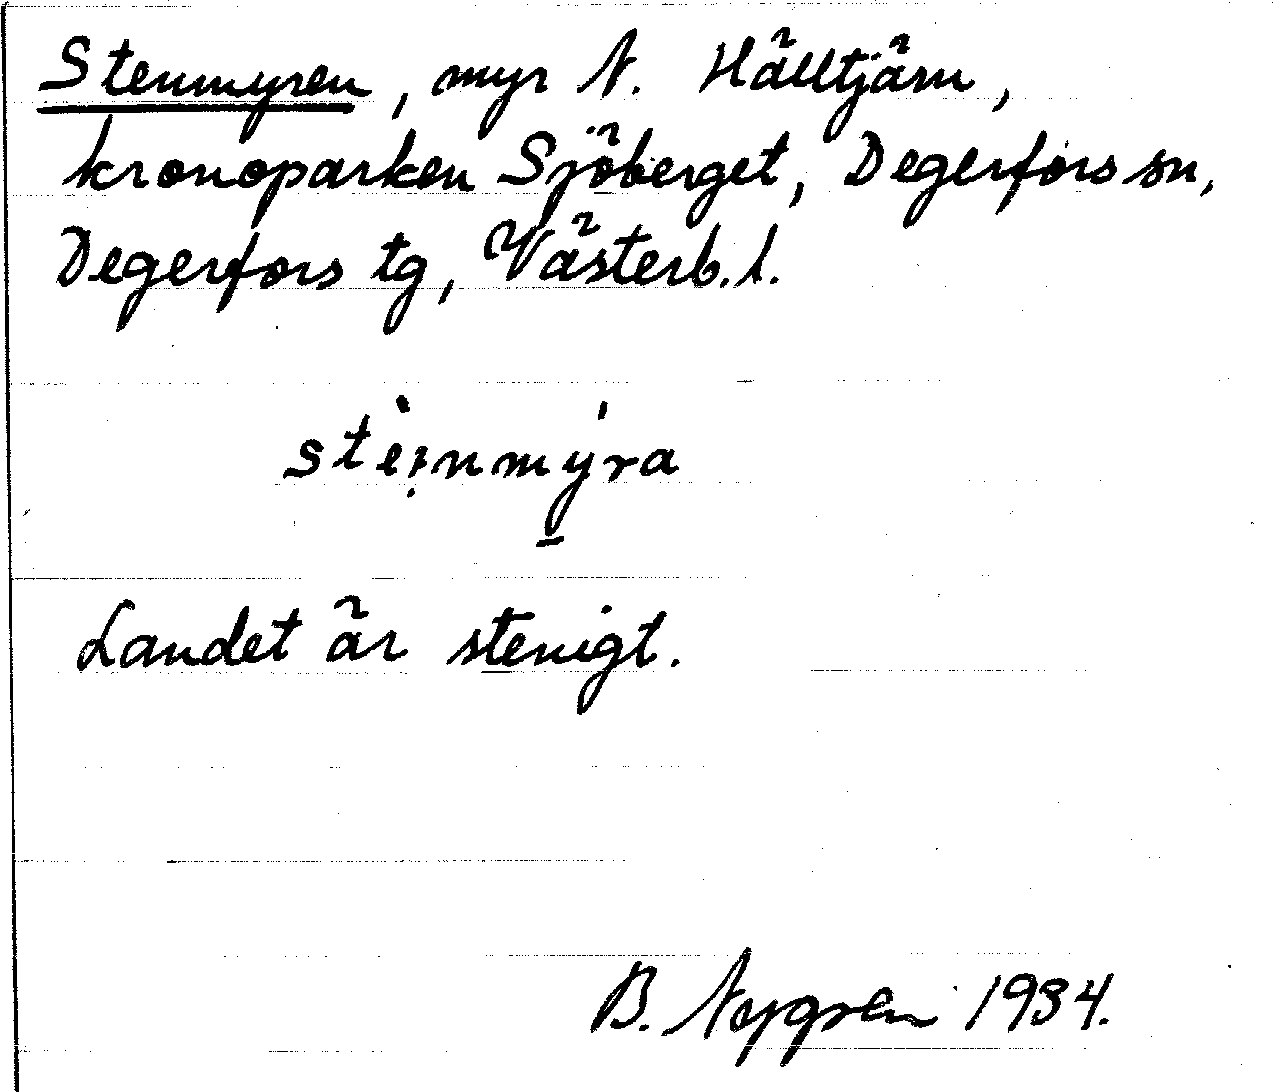 Stenmyren, myr N. Hälltjärn,
kronoparken Sjöberget, Degerfors sn,
Degerfors tg, Västerb. l.
steinmyra
Landet är stenigt.
B. Nygren 1934.